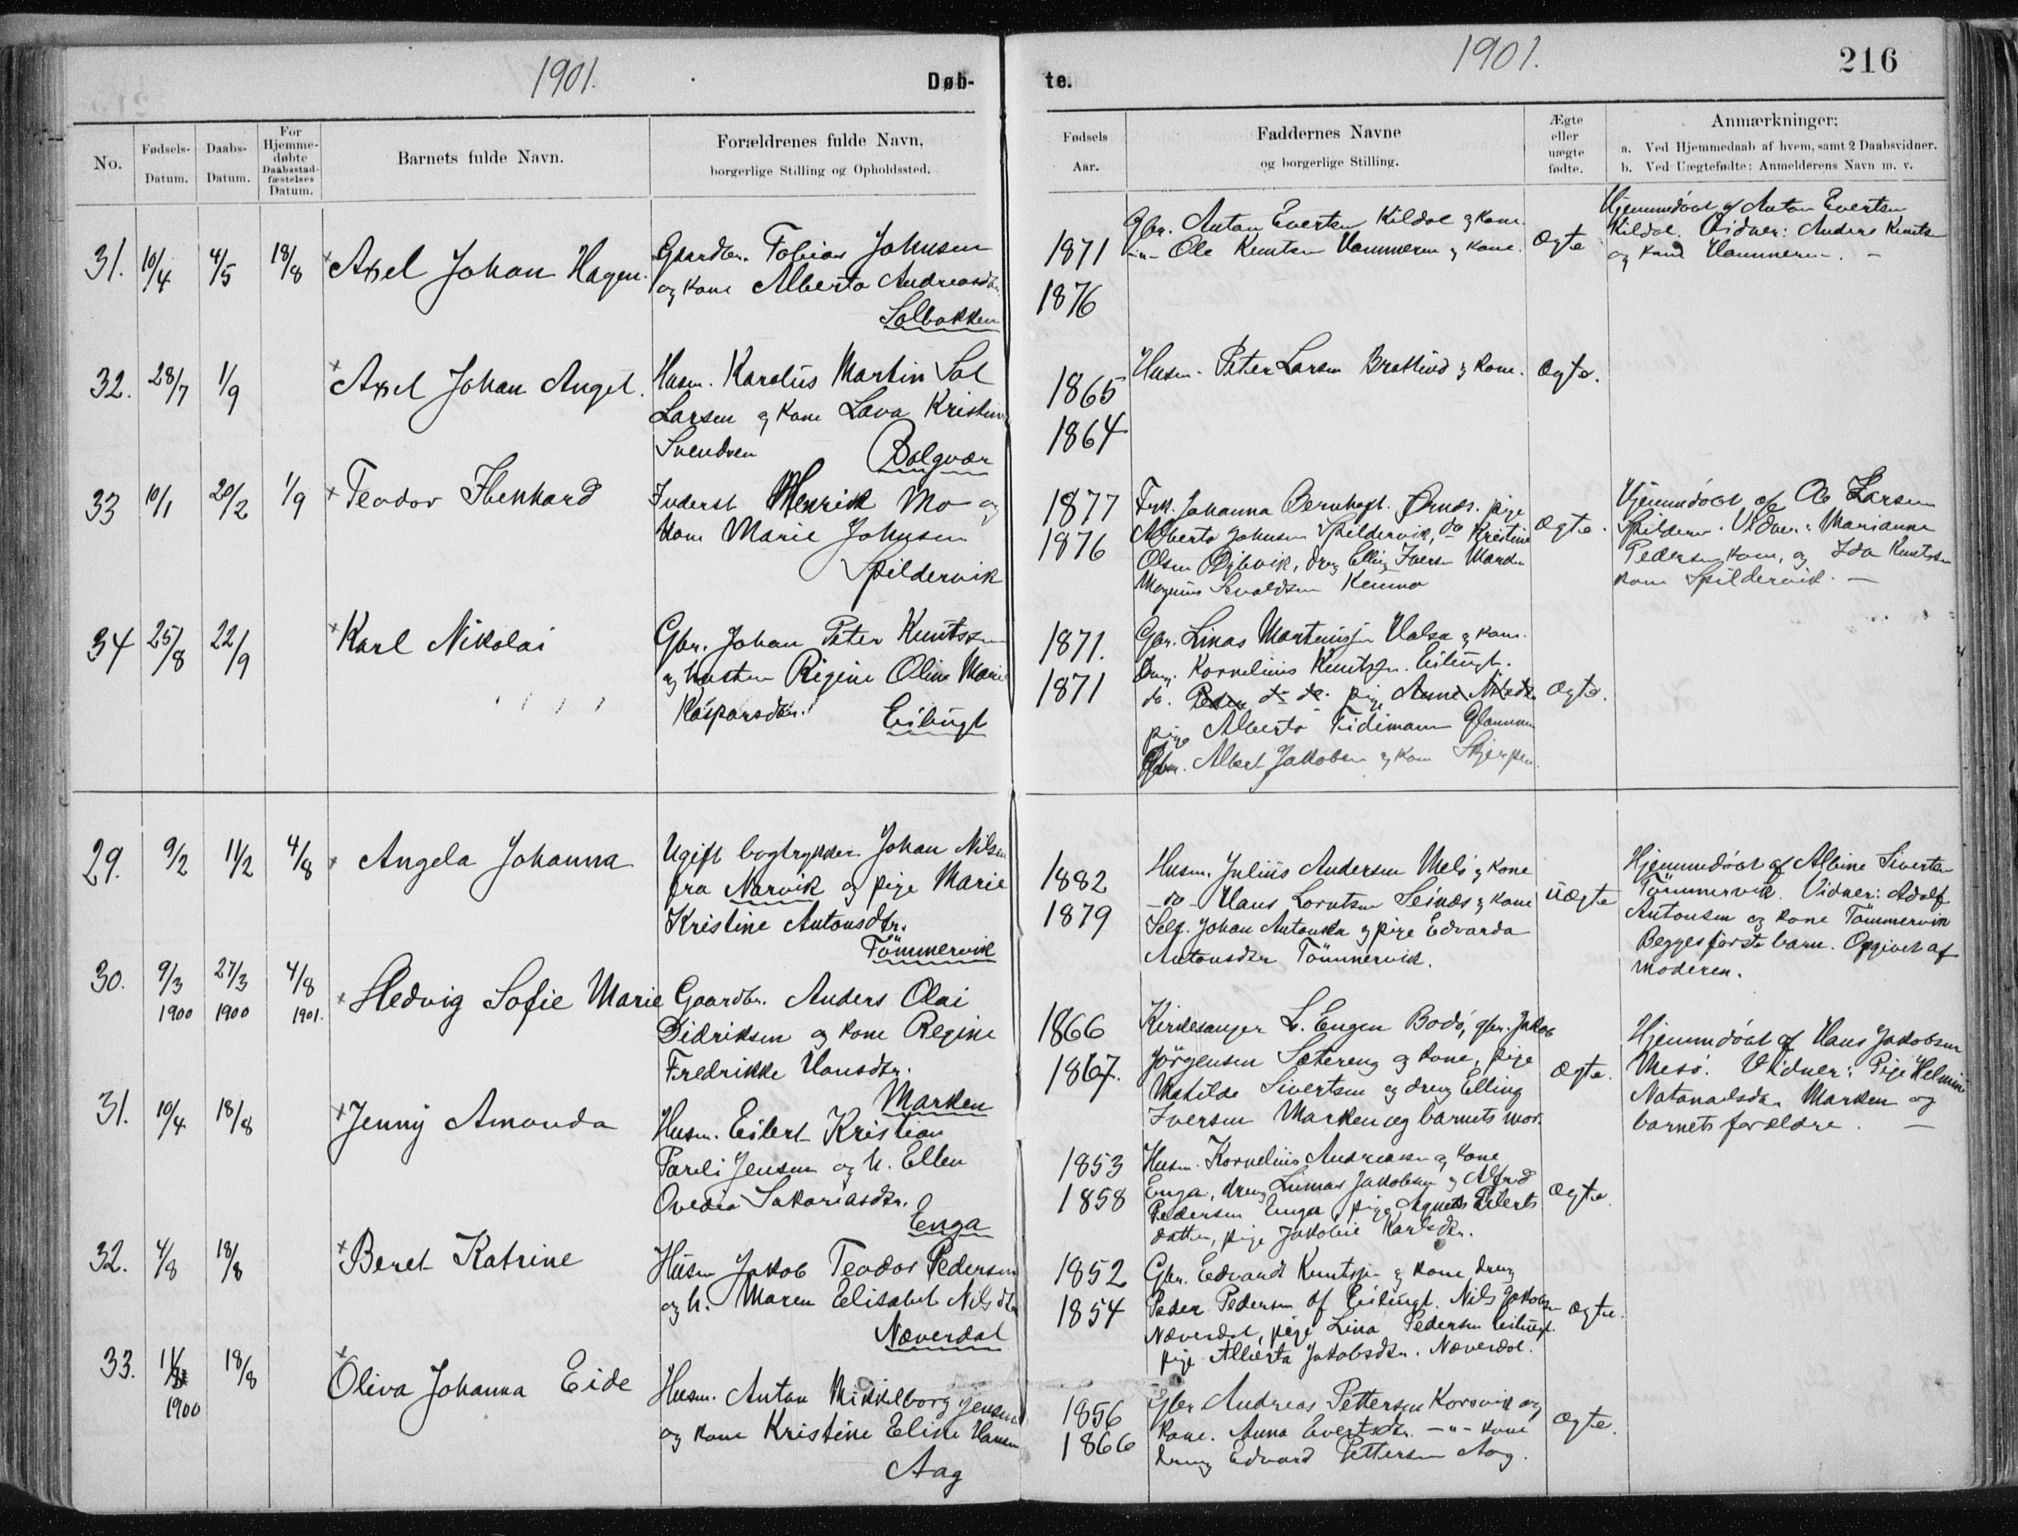 1901.
Døb-
No.
Fødsels-
Datum.
Daabs-
Datum.
For
Hjemme-
døbte
Daabsstad-
fæstelses
Datum.
Barnets fulde Navn.
Forældrenes fulde Navn,
borgerlige Stilling og Opholdssted.
31. 10/4 4/5 18/8 Axel Johan Hagen.
Gaardbr. Tobias Johnsen
og kone Alberta Andreasdtr.
Solbakken
32. 28/7 1/9 Axel Johan Angel.
Husm. Karelius Martin Sol
Larsen og kone Lava Kristine
Svendsen Bolgvær
33 10/1 20/2 1/9 Teodor Ibenhard
Inderst Henrik Mo og
kone Marie Johnsen
Spildervik
34 25/8 22/9 Karl Nikolai
Gbr. Johan Peter Knutssen
og hustru Rigine Oline Marie
Kaspersdtr.
Eilugt
29. 9/2 11/2 4/8 Angela Johanna
Ugift bogtrykker Johan Nilsen
fra Narvik og pige Marie
Kristine Antonsdtr.
Tömmervik
30. 9/3 1900 27/3 1900 4/8 1901. Hedvig Sofie Marie
Gaardbr. Anders Olai
Didriksen og kone Regine
Fredrikke Hansdtr.
Marken
31. 10/4 18/8 Jenny Amanda
Husm. Eilert Kristian
Pareli Jensen og h. Ellen
Ovedia Sakariasdtr.
Enga
32. 4/8 18/8 Beret Katrine
Husm Jakob Teodor Pedersen
og h. Maren Elisabet Nilsdtr
Næverdal
33. 11/8 1900 18/8 Oliva Johanna Eide
Husm. Anton Mikkelborg Jensen
og kone Kristine Eline Hansen
Aag
1901.
216
te.
Fødsels
Aar.
Faddernes Navne
og borgerlige Stilling.
Ægte
eller
uægte
fødte.
Anmærkninger:
a. Ved Hjemmedaab af hvem, samt 2 Daabsvidner.
b. Ved Uægtefødte: Anmelderens Navn m. v.
1871
1876
Gbr. Anton Evertsen Kildal og kone.
-"- Ole Knutsen Hammeren og kone.
Ægte
Hjemmedøbt af Anton Evertsen
Kildal. Vidner: Anders Knutsen
og kone Hammeren. -
1865
1864
Husm. Peter Larsen Brattlind og kone.
Ægte.
1877
1876
Frk. Johanna Bernhoft. Ørnes. pige
Alberta Johnsen Spildervik, do Kristine
Olsen Dybvik, dreng Elling Iversen Marken
Magnus Sevaldsen Kenna
Ægte.
Hjemmedøbt af Ole Larsen
Spildern. Vidner: Marianne
Pedersen kone, og Ida Knutsen
kone Spildervik. -
1871.
1871
Gbr. Linas Martinussen Halsa og kone.
Dreng. Kornelius Knutssen. Eilugt.
do. Peder do do. pige
pige Alberta Tidemann Glommen
Gbr. Albert Jakobsen og kone Skjerpen.
Ægte.
1882
1879
Husm. Julius Andersen Melö og kone
-do- Hans Lorntsen Seinæs og kone
Self. Johan Antonsen og pige Edvarda
Antonsdtr Tömmervik.
Uægte
Hjemmedøbt af Albine Sivertsen
Tömmervik. Vidner: Adolf
Antonsen og kone Tömmervik
Begges første barn. Opgivet af
moderen.
1866
1867.
Kirkesanger L. Engen Bodö, gbr. Jakob
Jörgensen Sætereng og kone, pige
Matilde Sivertsen og dreng Elling
Iversen Marken og barnets mor.
Ægte.
Hjemmedøbt af Hans Jakobsen
Mesö. Vidner: Pige Helmine
Natanaelsdtr. Marken og
barnets forældre. -
1853
1858
Husm. Kornelius Andreasen og kone
Enga, dreng Linas Jakobsen og Alfred
Pedersen Enga, pige Agnes Eilerts
datter, pige Jakobie Karlsdtr.
Ægte.
1852
1854
Gbr. Edvard Knutssen og kone dreng
Peder Pedersen af Eilugt. Nils Jakobsen
Næverdal, pige Lina Pedersen Eilugt.
pige Alberta Jakobsdtr. Næverdal.
Ægte.
1856
1866
Gbr Andreas Pettersen Korsvik og
kone. Anna Evertsdtr. -"- kone
dreng Edvard Pettersen Aag.
Ægte.